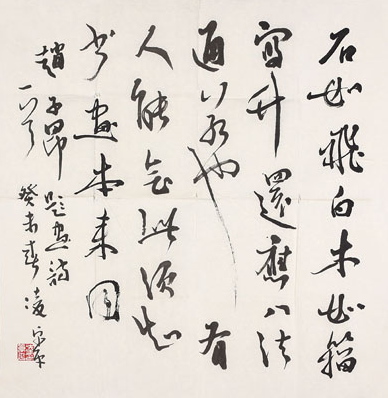 石如飛白木如籀
寫竹還應八法
通若也有
人能會此須知
書畫本來同
趙子昂題畫詩
一首癸未春凌